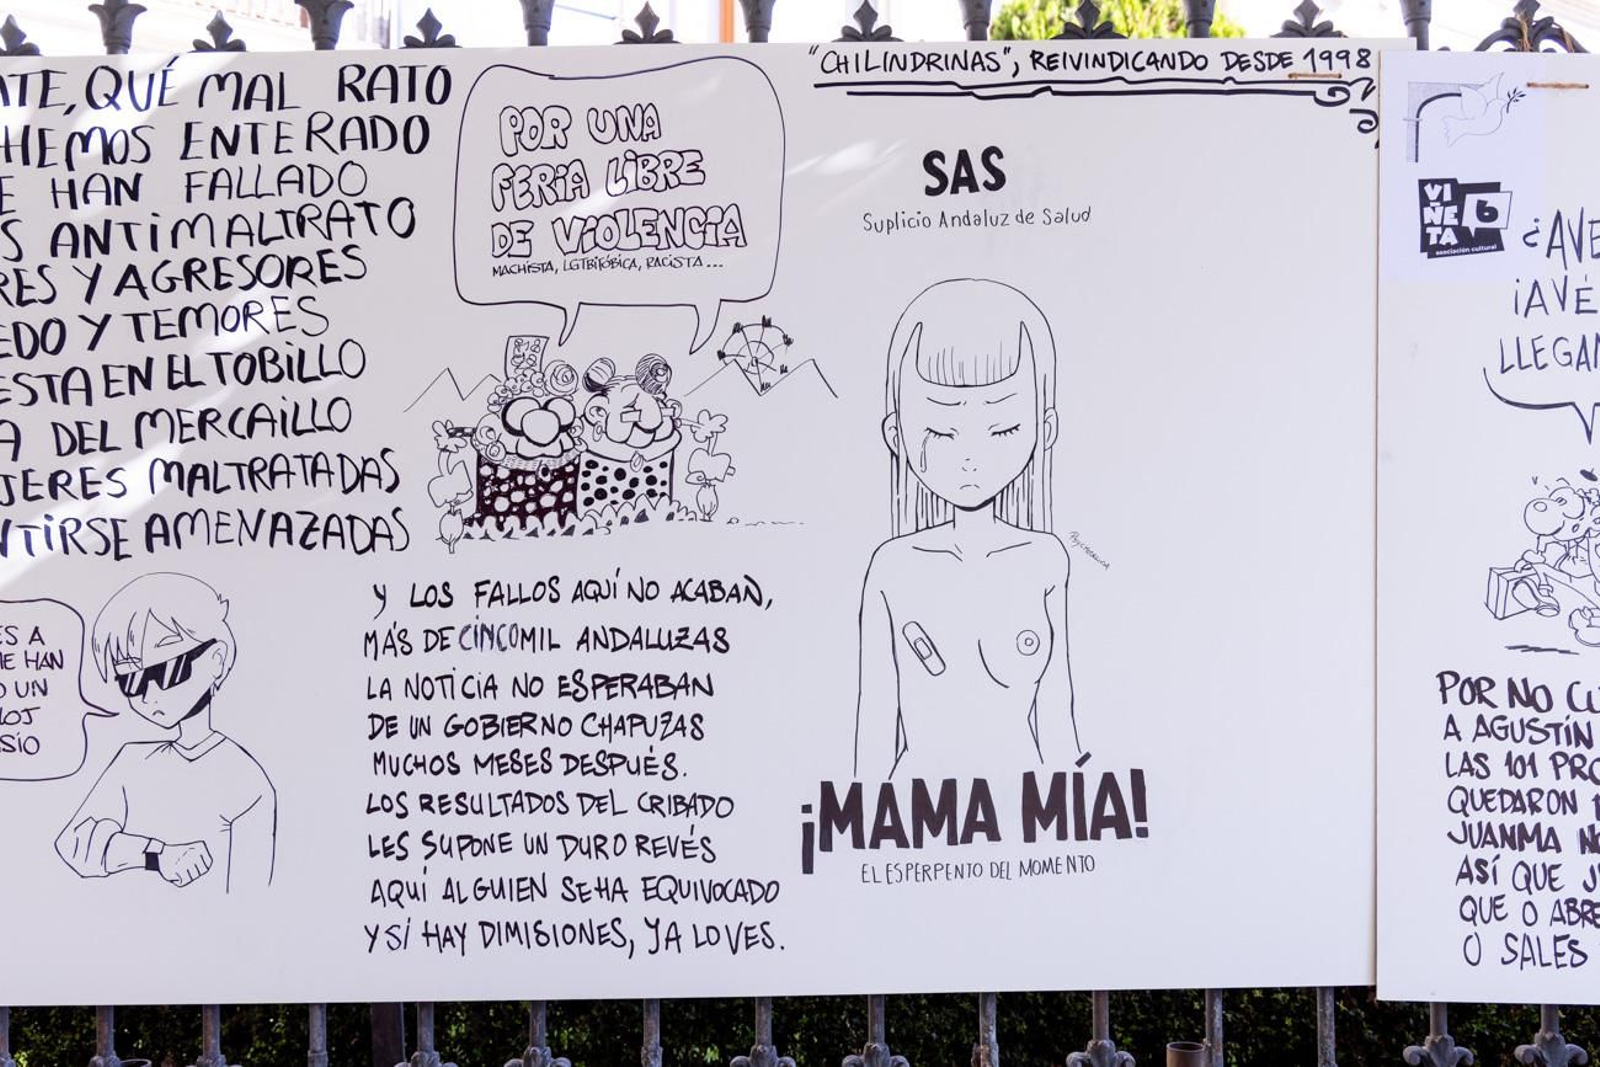 QUÉ MAL RATO
HEMOS ENTERADO
HAN FALLADO
ANTIMALTRATO
Y AGRESORES
Y TEMORES
EN EL TOBILLO
DEL MERCAILLO
MALTRATADAS
AMENAZADAS
A
HAN
UN
POR UNA
FERIA LIBRE
DE VIOLENCIA
MACHISTA, LGTBIFÓBICA, RACISTA...
Y LOS FALLOS AQUÍ NO ACABAN,
MÁS DE CINCOMIL ANDALUZAS
LA NOTICIA NO ESPERABAN
DE UN GOBIERNO CHAPUZAS
MUCHOS MESES DESPUÉS.
LOS RESULTADOS DEL CRIBADO
LES SUPONE UN DURO REVÉS
AQUÍ ALGUIEN SE HA EQUIVOCADO
Y SÍ HAY DIMISIONES, YA LO VES.
"CHILINDRINAS", REIVINDICANDO DESDE 1998
SAS
Suplicio Andaluz de Salud
¡MAMA MÍA!
EL ESPERPENTO DEL MOMENTO
VI
ÑE
TA
6
asociación cultural
POR NO
A AGUSTÍN
LAS 101
QUEDARON
JUANMA
ASÍ QUE
QUE O
O SALES